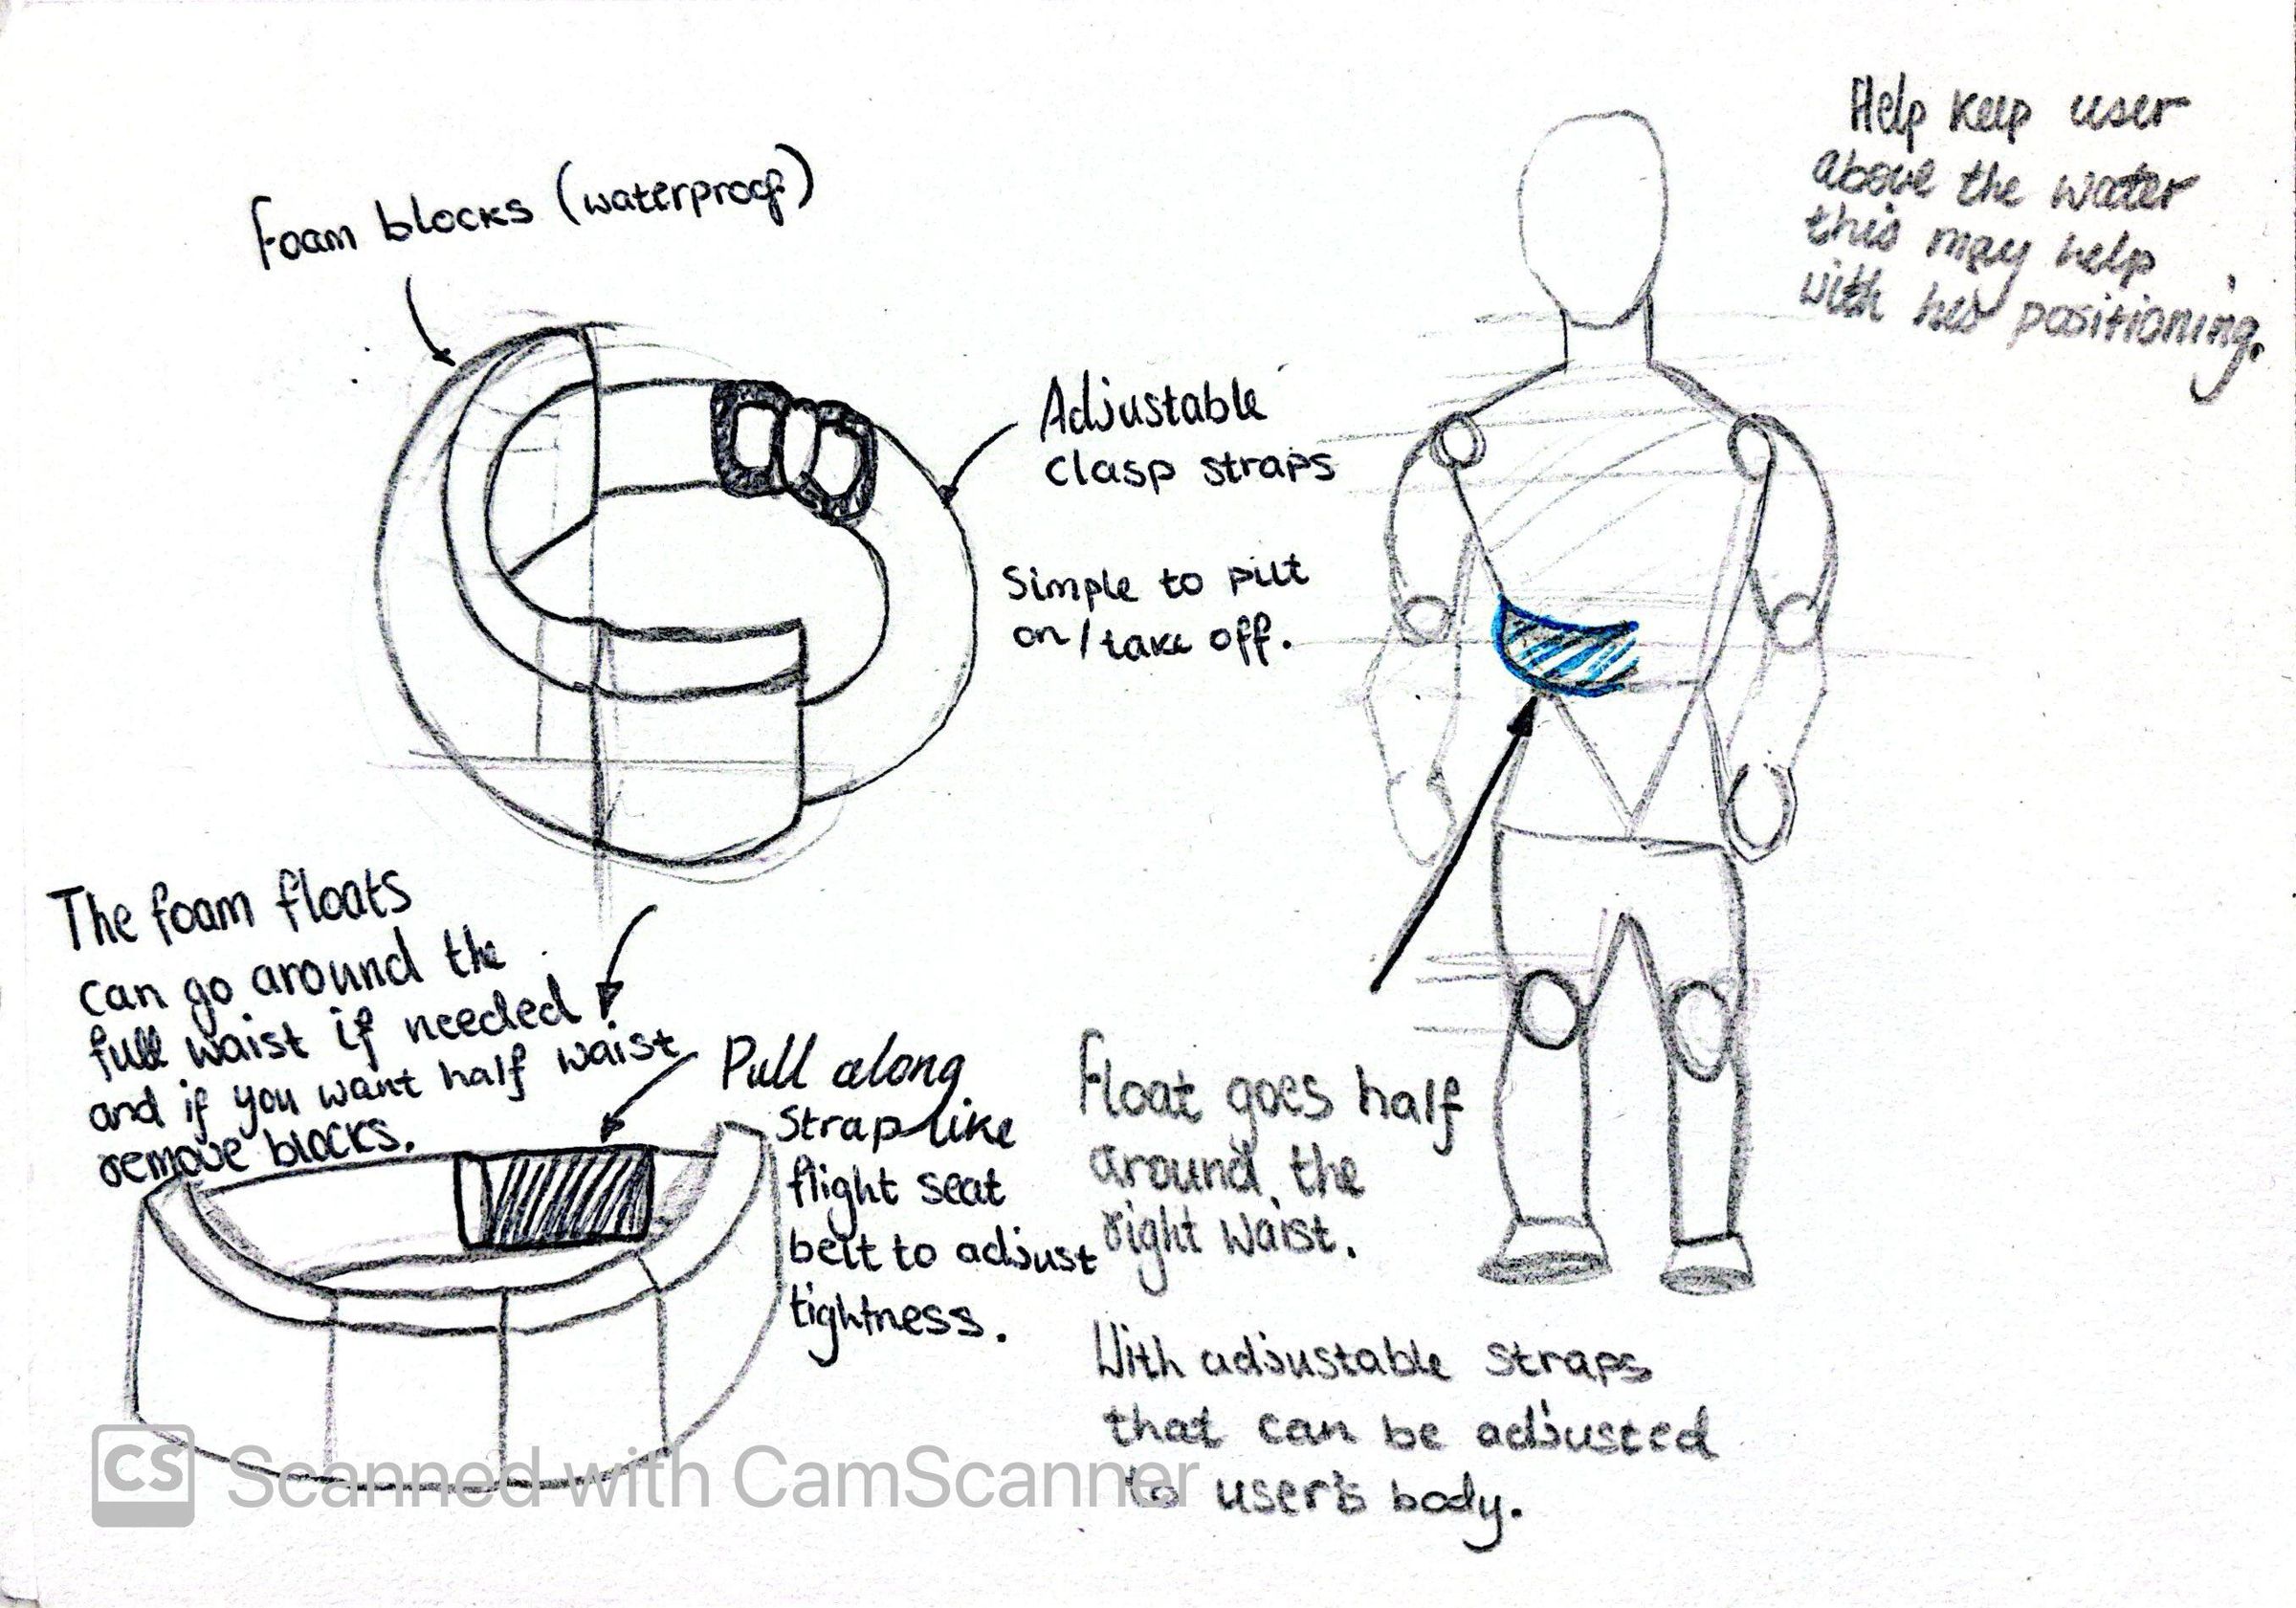 Foam blocks (waterproof)
Adjustable
clasp straps
Simple to put
on/take off.
Help keep user
above the water
this may help
with her positioning.
The foam floats
can go around the
full waist if needed
and if you want half waist
remove blocks.
Pull along
strap like
flight seat
belt to adjust
tightness.
Float goes half
around the
right waist.
With adjustable straps
that can be adjusted
to user's body.
CS Scanned with CamScanner